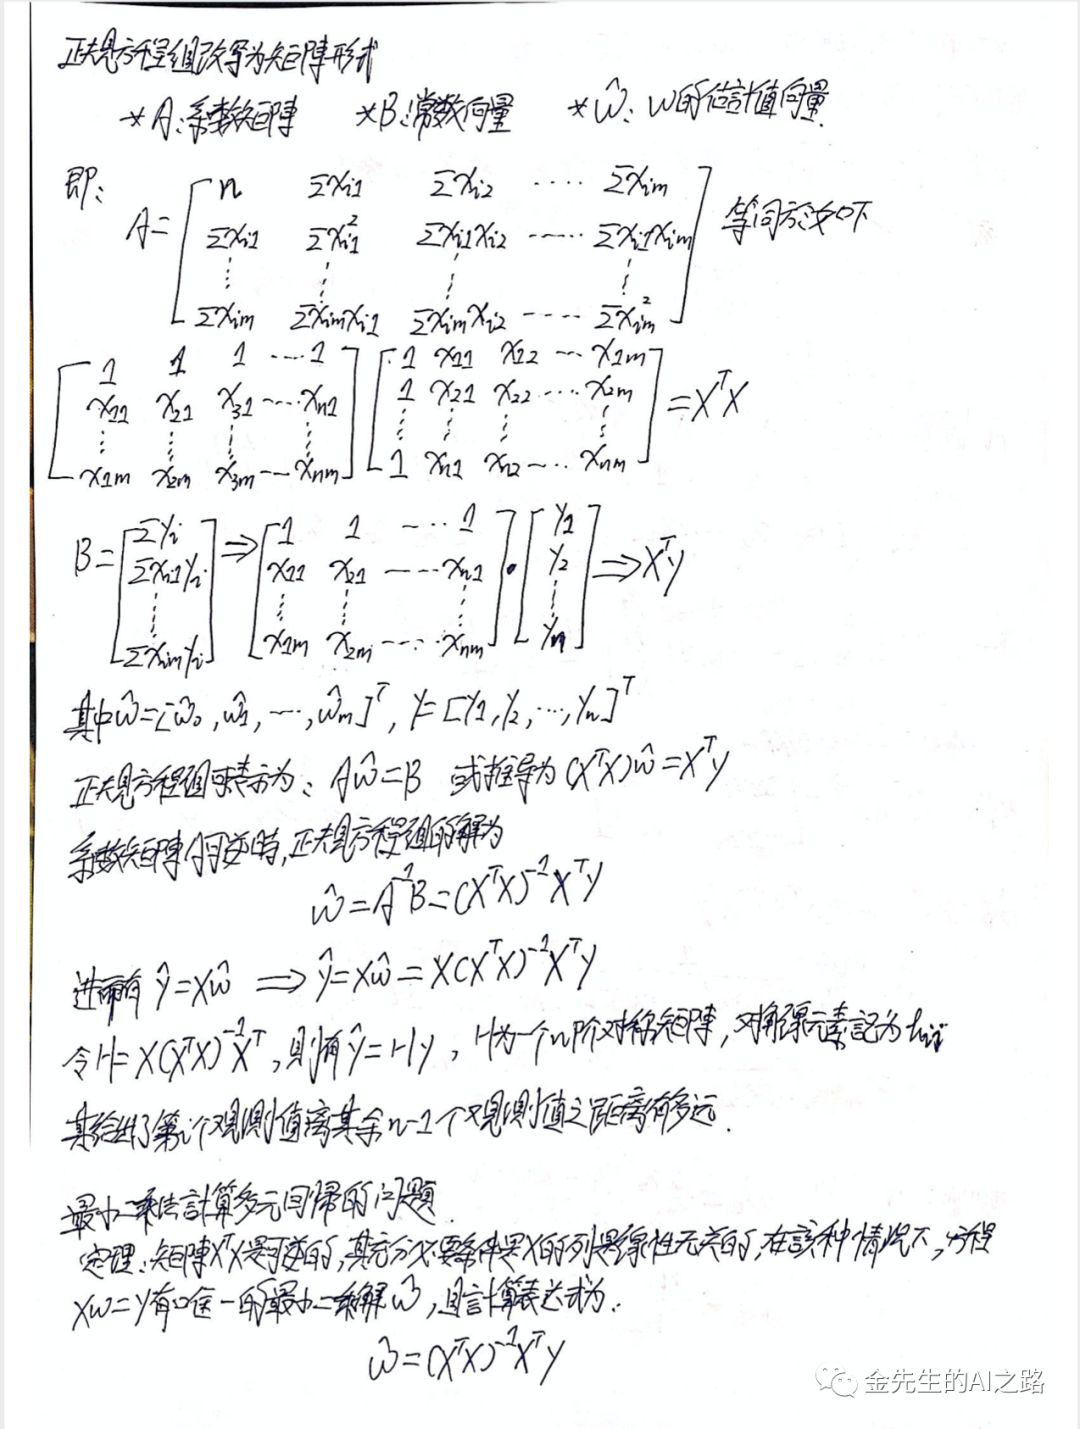 正规方程组改写为矩阵形式
*A:系数矩陣 *B:常数向量 *ŵ: w的估計值向量
即:
A=[n Σxi1 Σxi2 ···· Σxim
Σxi1 Σxi1² Σxi1xi2 ····· Σxi1xim
⋮ ⋮ ⋮ ⋮
Σxim Σximxi1 Σximxi2 ····· Σxim²] 等同於如下
[1 1 1 ···· 1
x11 x21 x31 ···· xn1
⋮ ⋮ ⋮ ⋮
x1m x2m x3m ··· xnm]
[1 x11 x22 ··· x1m
1 x21 x22 ···· x2m
⋮ ⋮ ⋮ ⋮
1 xn1 xn2 ···· xnm] =XᵀX
B=[Σyi
Σxi1yi
⋮
Σximyi] ⇒ [1 1 ···· 1
x11 x21 ····· xn1
⋮ ⋮ ⋮
x1m x2m ····· xnm] · [y1
y2
⋮
yn] ⇒ Xᵀy
其中ŵ=[ŵ0,ŵ1,···,ŵm]ᵀ, y=[y1,y2,···,yn]ᵀ
正规方程组可表示为: Aŵ=B 或推导为 (XᵀX)ŵ=Xᵀy
系数矩陣A可逆時,正规方程组的解为
ŵ=A⁻¹B=(XᵀX)⁻¹Xᵀy
进而有 ŷ=Xŵ ⇒ ŷ=Xŵ=X(XᵀX)⁻¹Xᵀy
令H=X(XᵀX)⁻¹Xᵀ,则有ŷ=Hy, H为一个n阶对称矩陣,对角線元素記为hii
其给出了第i个观測值离其余n-1个观測值之距离有多远.
最小二乘法計算多元回帰的问題
定理:矩陣XᵀX是可逆的,其充分必要条件是X的列是線性无关的,在該种情况下,方程
Xw=y有唯一的最小二乘解ŵ,且計算表达式为:
ŵ=(XᵀX)⁻¹Xᵀy
金先生的AI之路